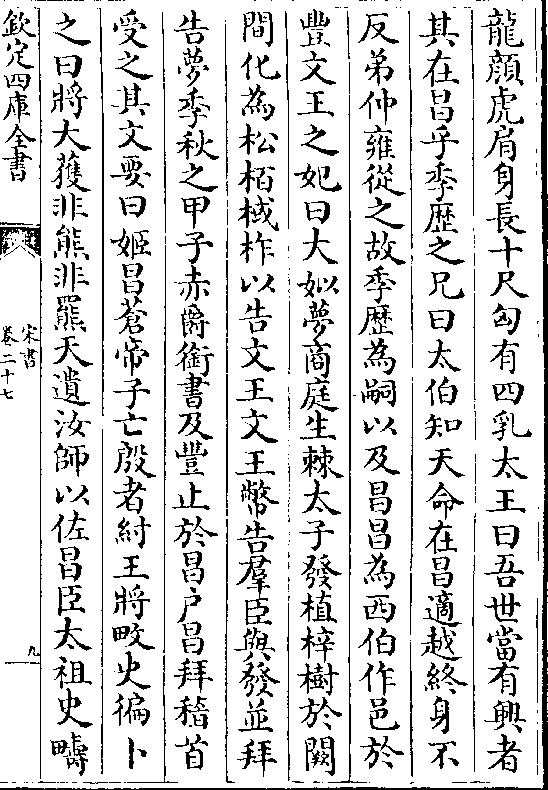 龍顔虎肩身長十尺匈有四乳太王曰吾世當有興者
其在昌乎季歷之兄曰太伯知天命在昌適越終身不
反弟仲雍從之故季歷為嗣以及昌昌為西伯作邑於
豐文王之妃曰大姒夢商庭生棘太子發植梓樹於闕
間化為松栢棫柞以告文王文王幣告羣臣與發並拜
告夢季秋之甲子赤爵銜書及豐止於昌户昌拜稽首
受之其文要曰姬昌蒼帝子亡殷者紂王將畋史徧卜
之曰將大獲非熊非羆天遺汝師以佐昌臣太祖史疇
欽定四庫全書
宋書
卷二十七
九